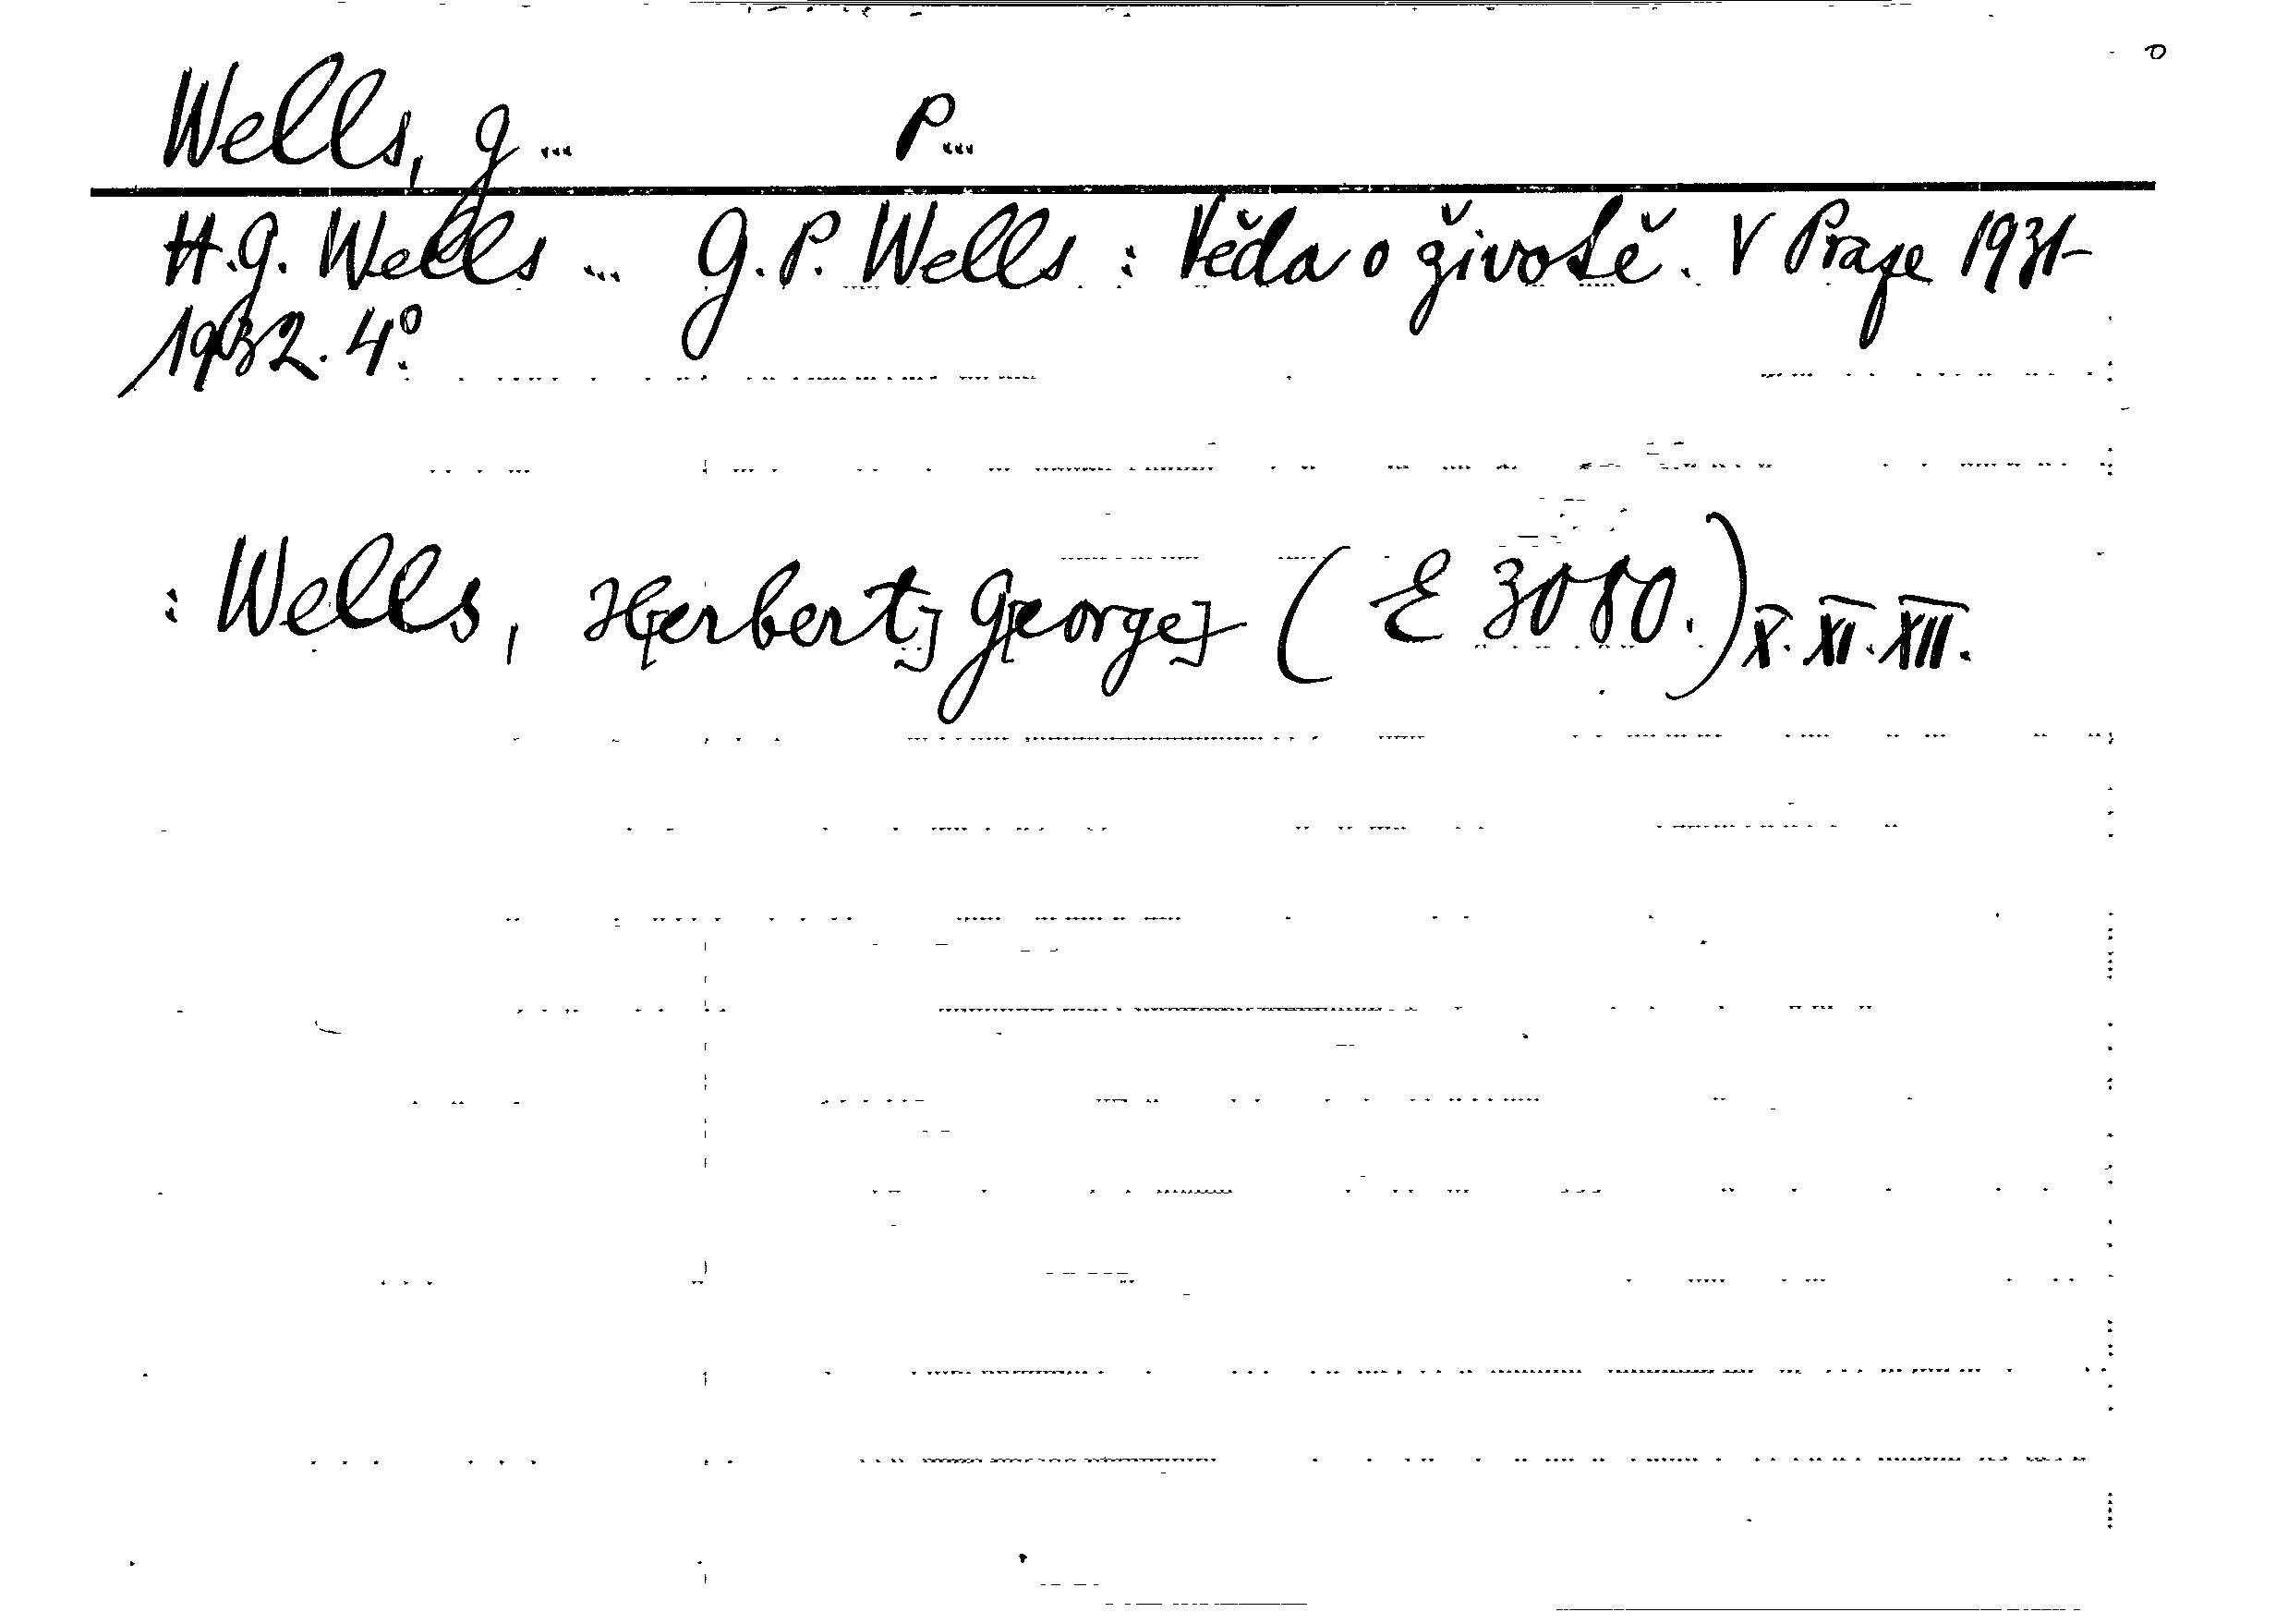 Wells, G... P...
H.G. Wells ... G.P. Wells : Věda o životě. V Praze 1931-
1932. 4°.
: Wells, H[erbert] G[eorge] (E 3080.) X. XI. XII.